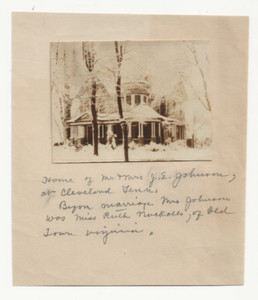 Home of Mr & Mrs J. E. Johnson,
at Cleveland Tenn.
Before marriage Mrs Johnson
was Miss Ruth Nuckolls, of Old
Town Virginia.